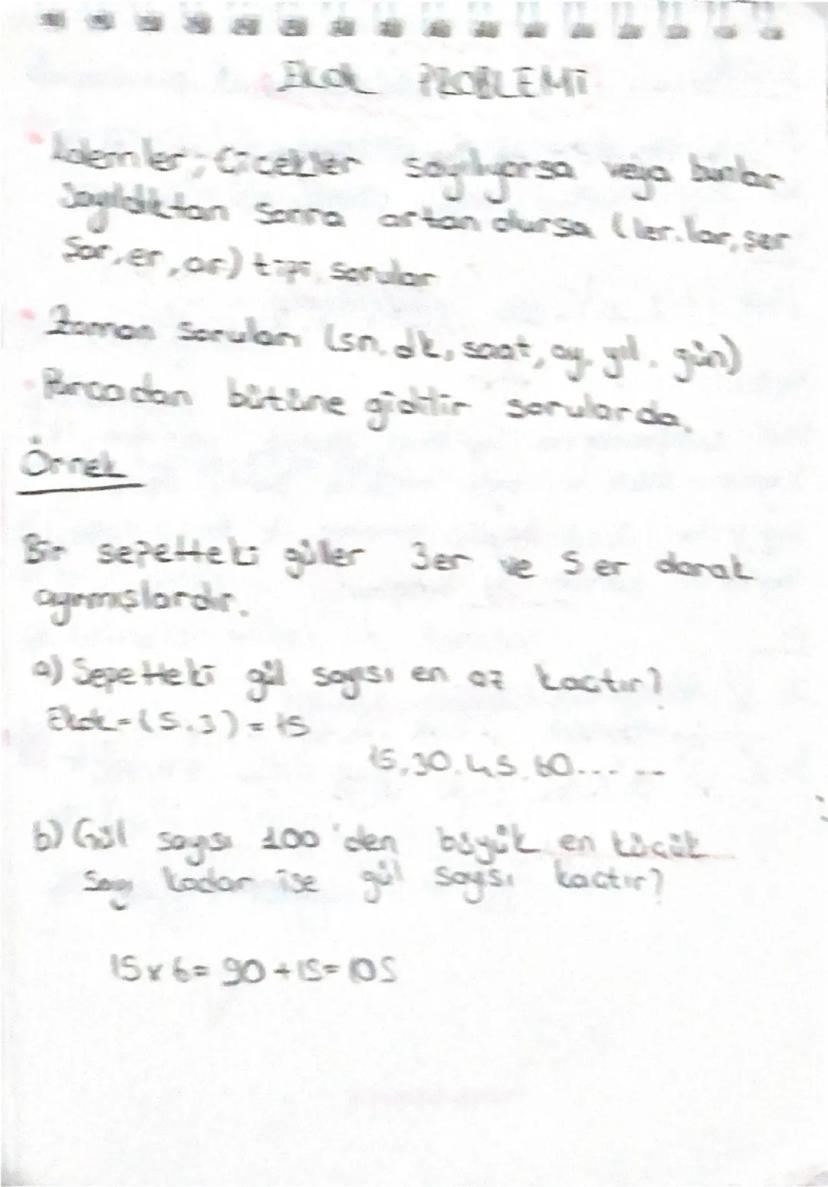 EKOK PROBLEMİ
Kalemler, Çiçekler sayılıyorsa veya bunlar
Sayıldıktan Sonra artan olursa (ler, lar, şer
Şar, er, ar) tipi sorular
Zaman Soruları (sn, dk, saat, ay, yıl, gün)
Parçadan bütüne gidilir sorularda.
Örnek
Bir sepetteki güller 3er ve 5 er olarak
ayırmışlardır.
a) Sepetteki gül sayısı en az kaçtır?
Ekok = (5,3) = 15
15, 30, 45, 60... ...
b) Gül sayısı 100'den büyük en küçük
Sayı kadar ise gül sayısı kaçtır?
15 x 6 = 90 + 15 = 105